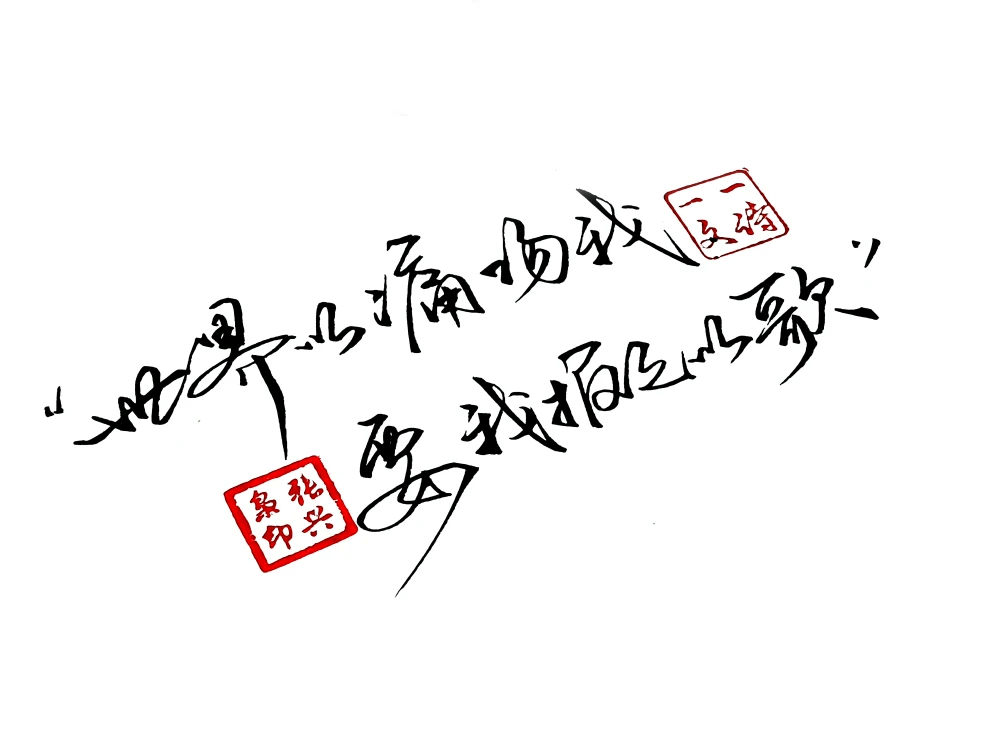 “世界以痛吻我
一诗
一文
要我报之以歌”
张兴
印